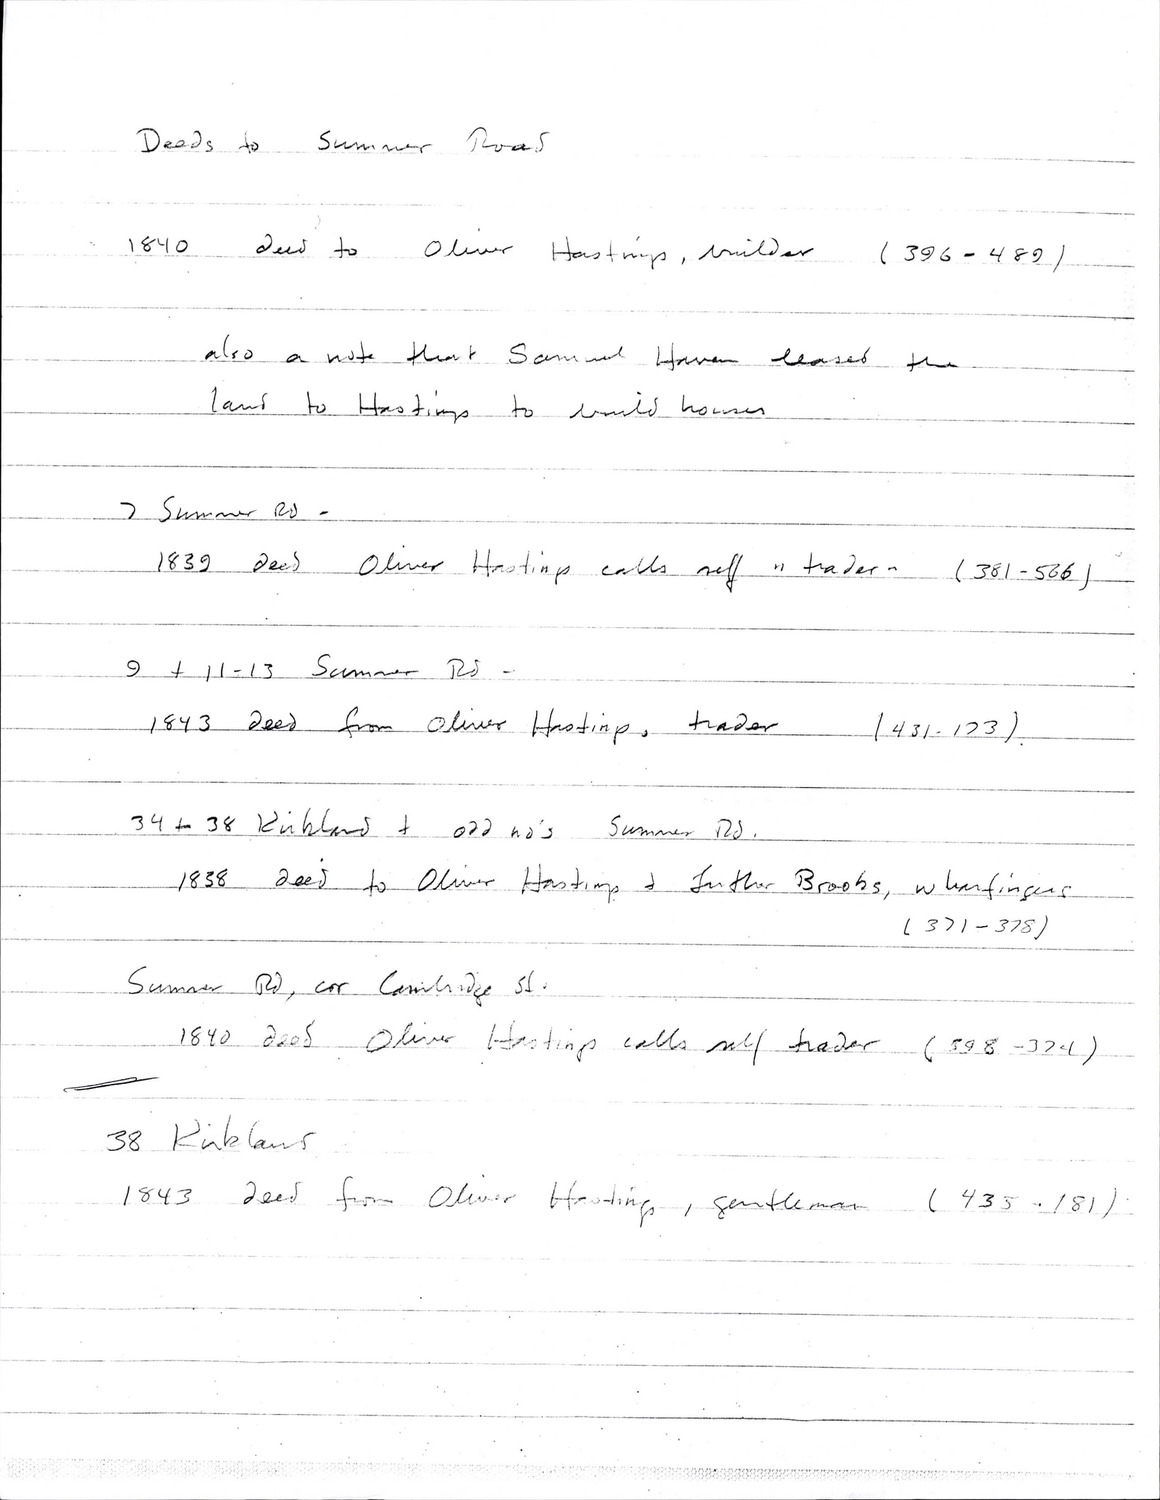 Deeds to Summer Road
1840 deed to Oliver Hastings, builder (396-489)
also a note that Samuel Haven leased the
land to Hastings to build houses
7 Summer Rd -
1839 deed Oliver Hastings calls self "trader" (381-566)
9 + 11-13 Summer Rd -
1843 deed from Oliver Hastings, trader (431-173)
34 + 38 Kirkland + odd no's Summer Rd.
1838 deed to Oliver Hastings + Luther Brooks, wharfingers
(371-378)
Summer Rd, cor Cambridge St.
1840 deed Oliver Hastings calls self trader (398-374)
38 Kirkland
1843 deed from Oliver Hastings, gentleman (435-181)